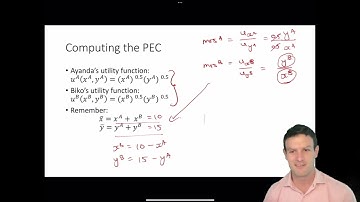 Computing the PEC
• Ayanda's utility function:
u^A(x^A, y^A) = (x^A)^0.5 (y^A)^0.5
• Biko's utility function:
u^B(x^B, y^B) = (x^B)^0.5 (y^B)^0.5
• Remember:
x̄ = x^A + x^B = 10
ȳ = y^A + y^B = 15
x^B = 10 - x^A
y^B = 15 - y^A
mrs^A = u_x^A / u_y^A = y^A / x^A
mrs^B = u_x^B / u_y^B = y^B / x^B